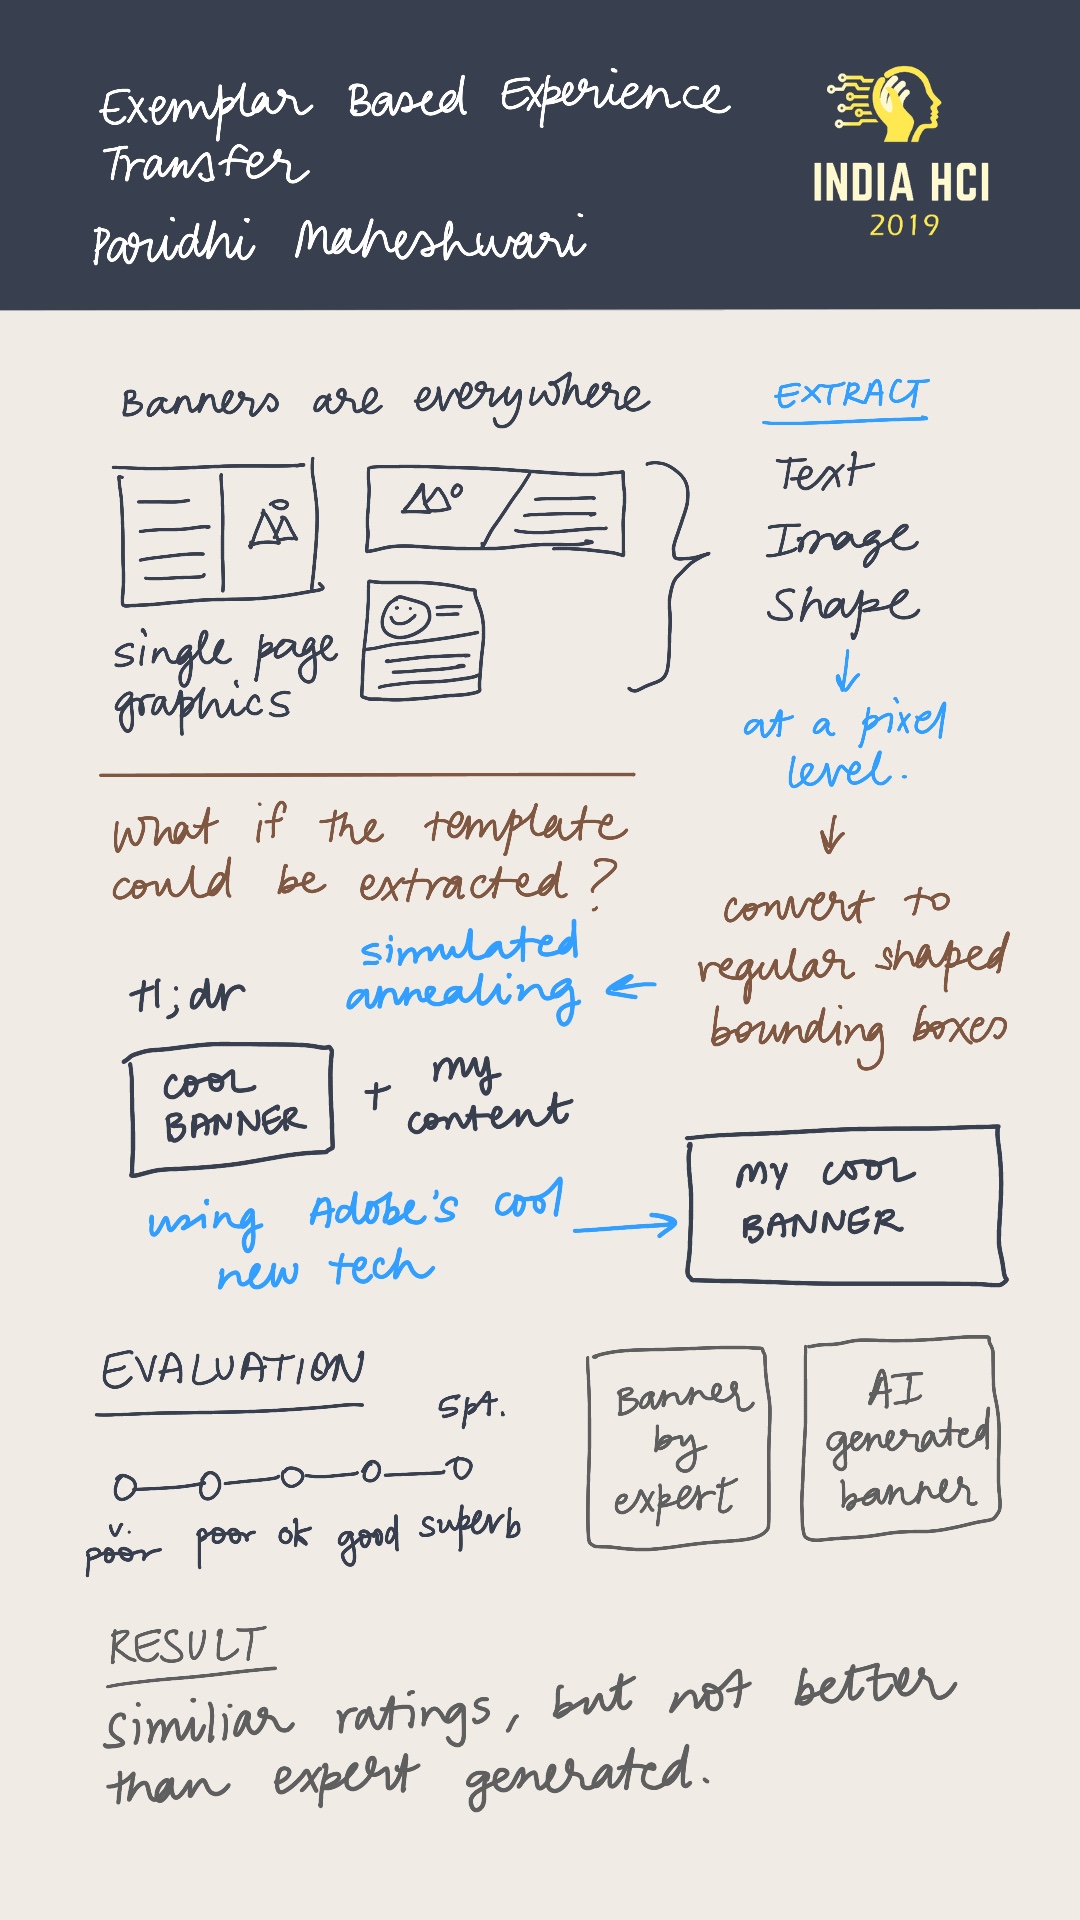 Exemplar Based Experience
Transfer
Paridhi Maheshwari
INDIA HCI
2019
Banners are everywhere
single page
graphics
EXTRACT
Text
Image
Shape
at a pixel
level.
What if the template
could be extracted?
convert to
regular shaped
bounding boxes
simulated
annealing
tl;dr
COOL
BANNER
+ my
content
using Adobe's cool
new tech
MY COOL
BANNER
EVALUATION
5pt.
v.
poor poor ok good superb
Banner
by
expert
AI
generated
banner
RESULT
Similiar ratings, but not better
than expert generated.